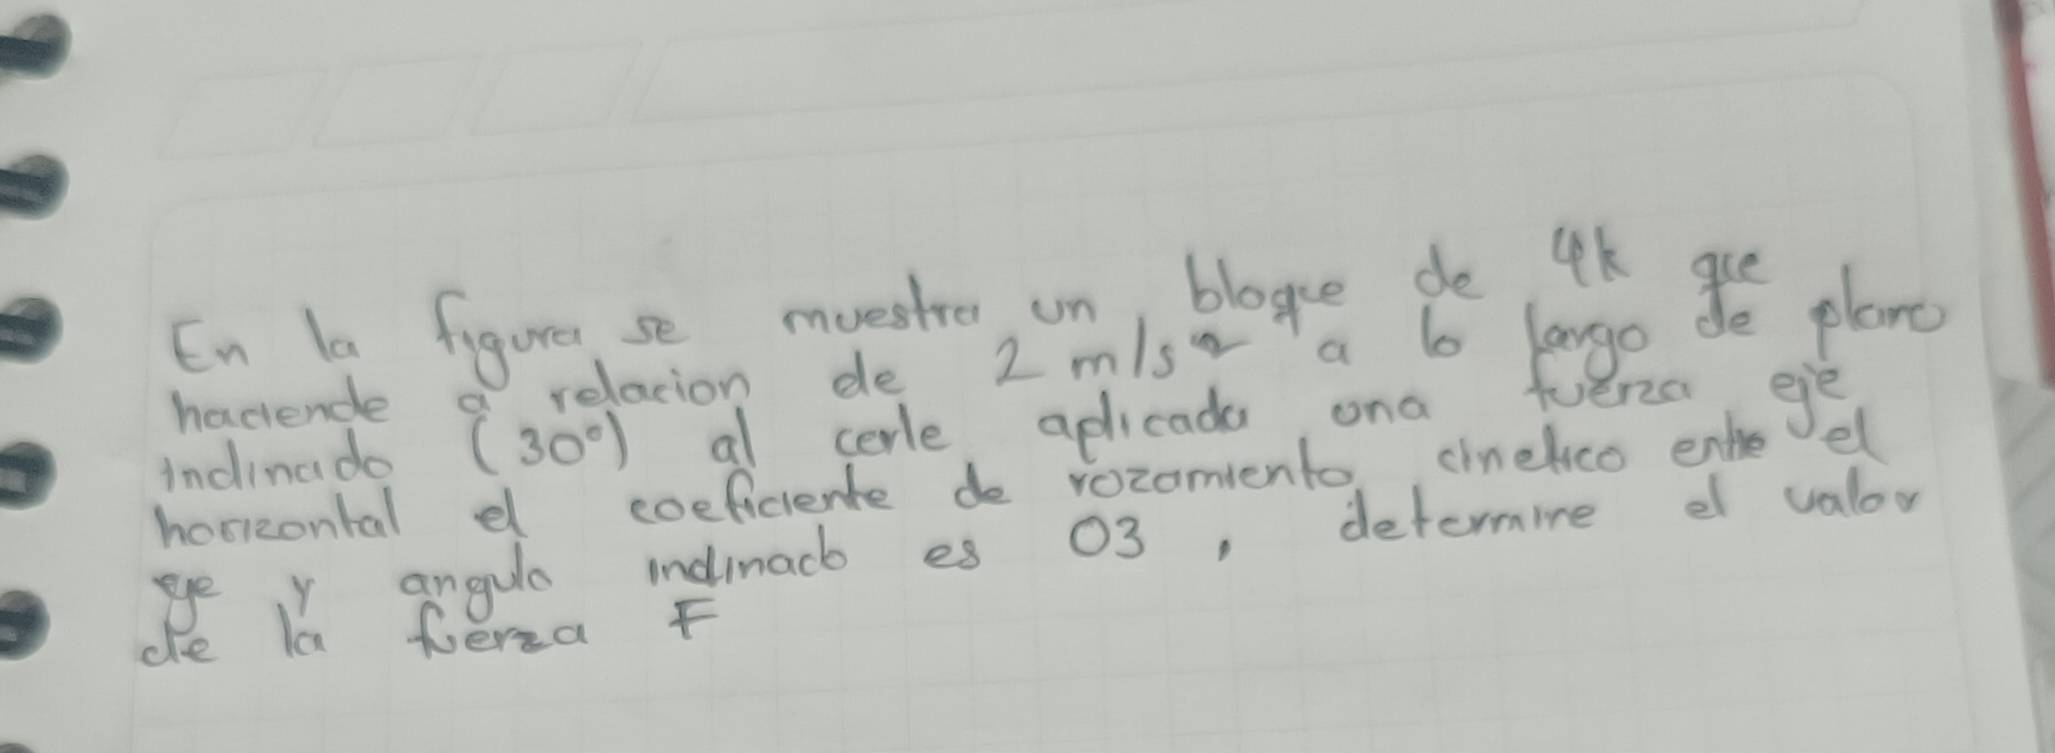 En la figura se muestra un bloque de 4k que
haciende a relacion de 2 m/s2 a lo largo de plano
inclinado (30°) al cerle aplicada una fuerza eje
horizontal el coeficiente de rozamiento cinetico entre el
eje y angulo inclinado es 03, determine el valor
de la fuerza F